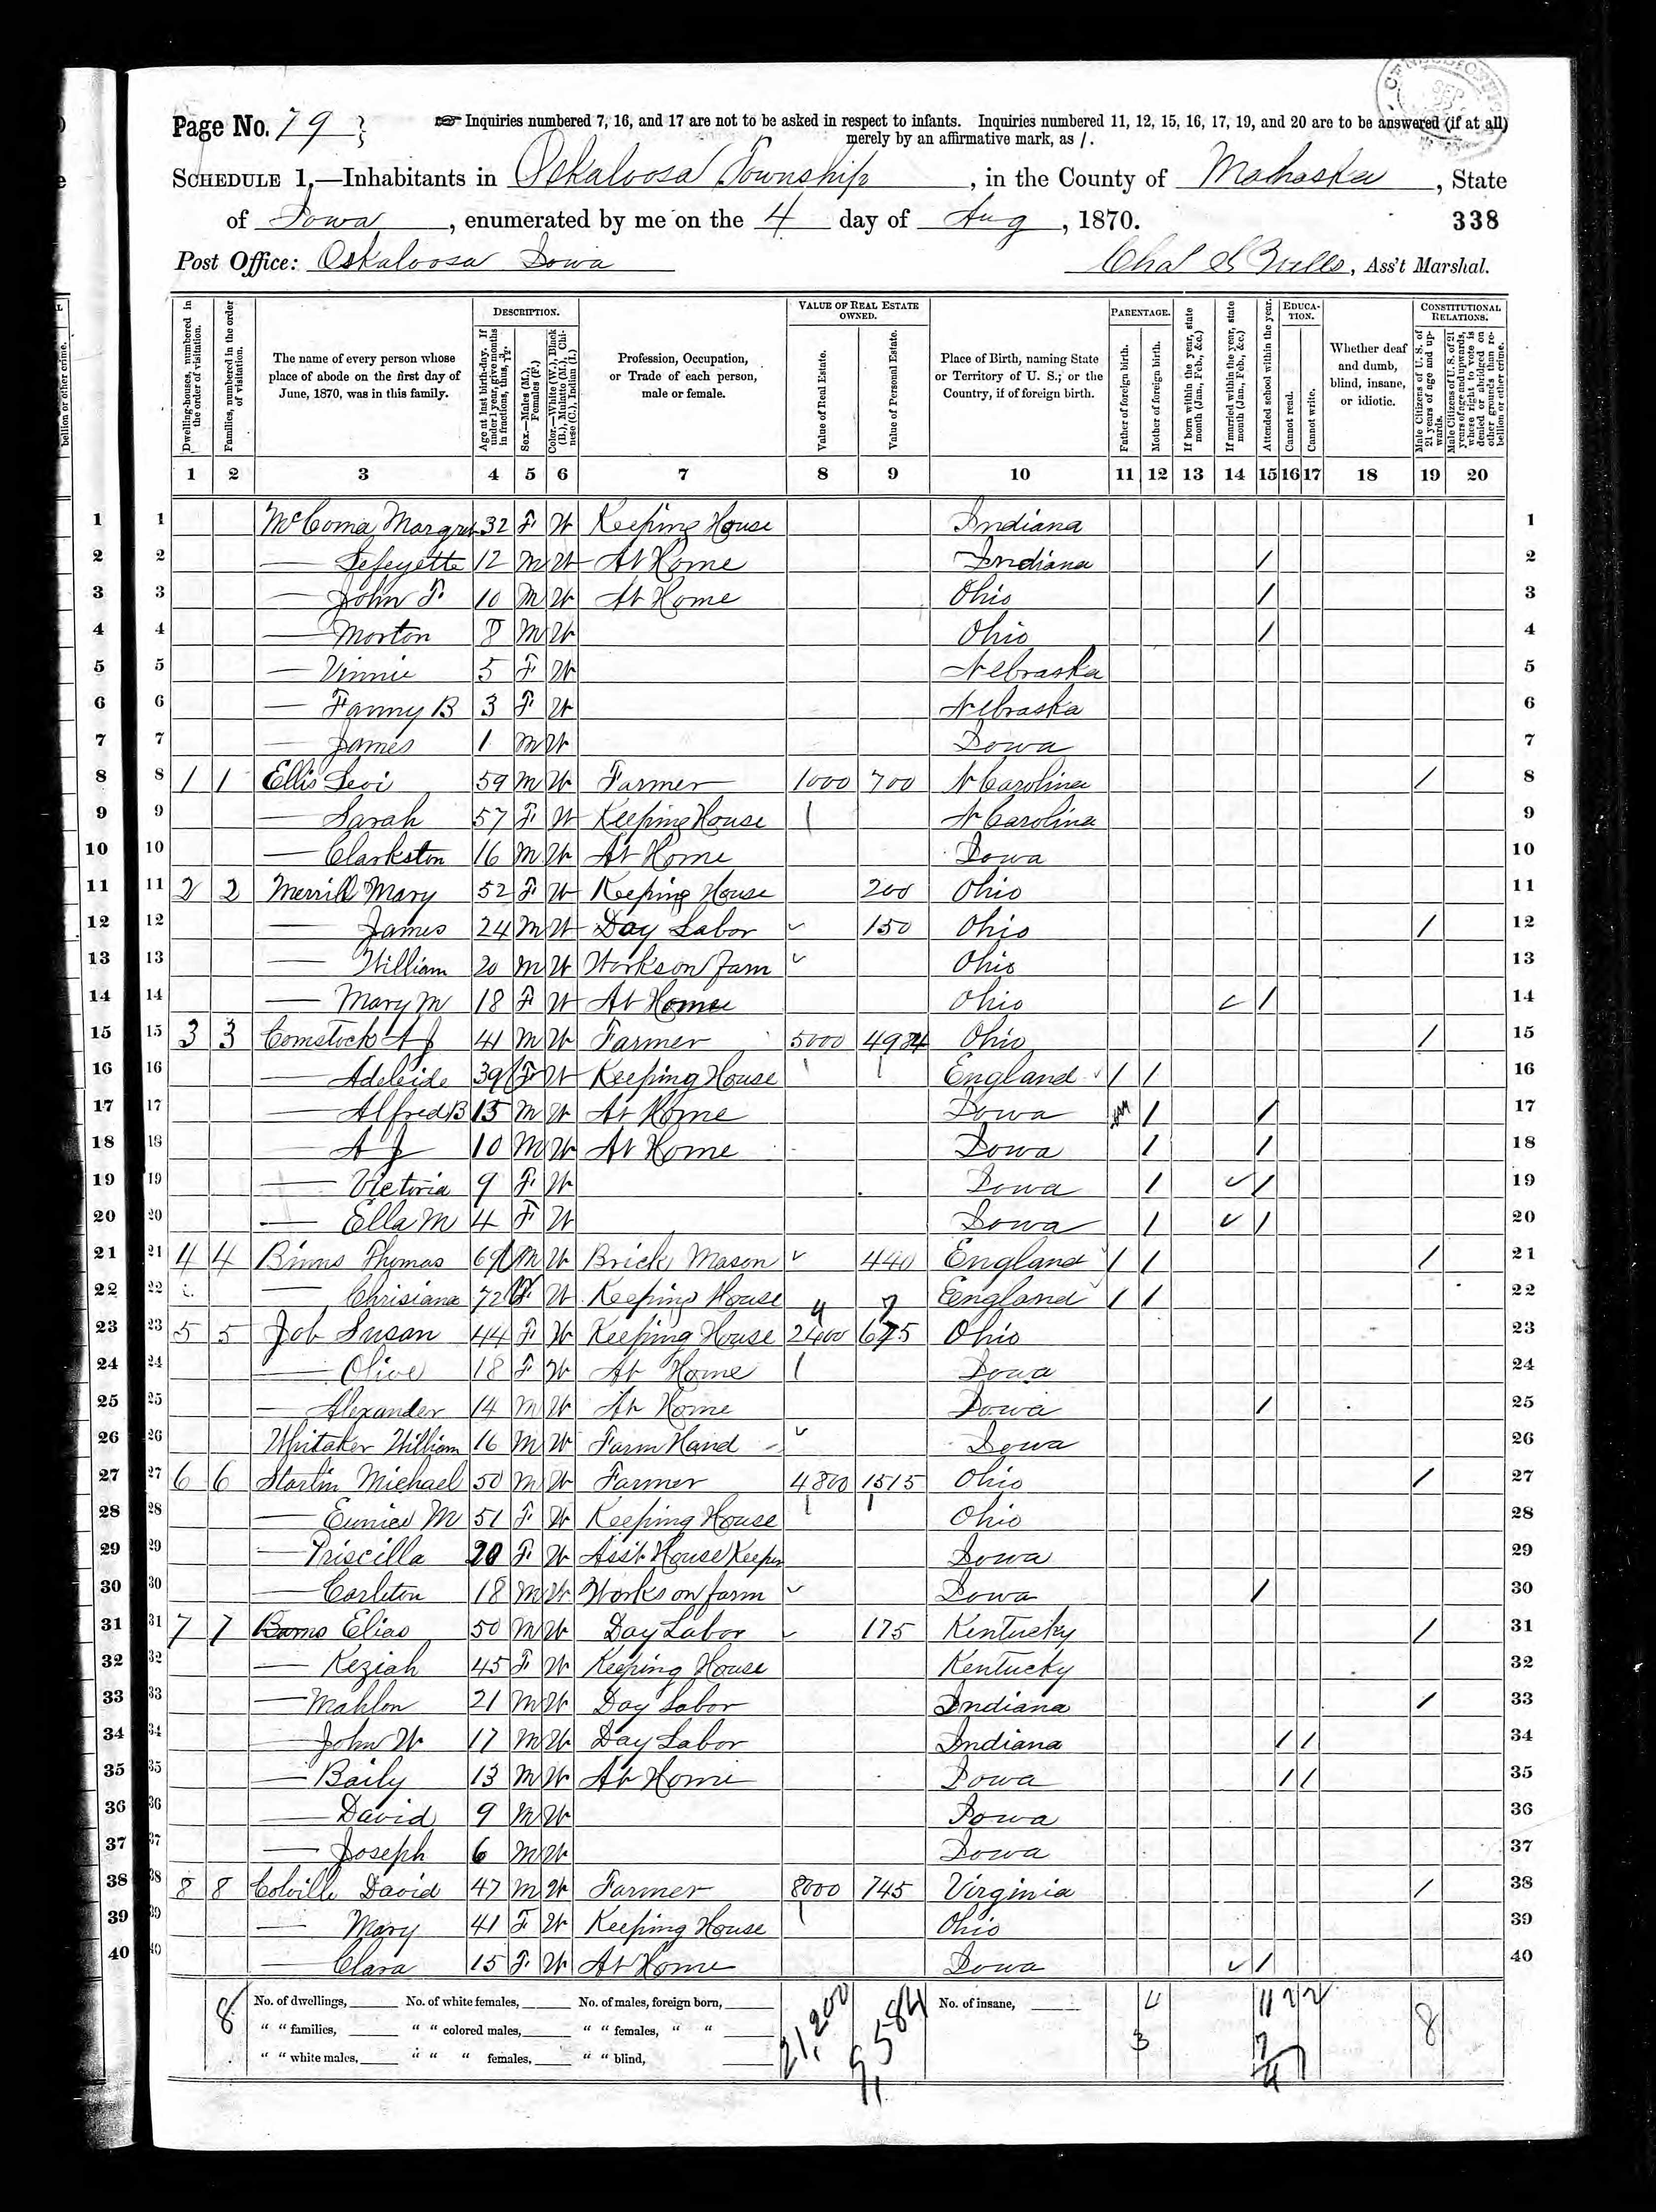 Page No. 79
Inquiries numbered 7, 16, and 17 are not to be asked in respect to infants. Inquiries numbered 11, 12, 15, 16, 17, 19, and 20 are to be answered (if at all)
merely by an affirmative mark, as /.
SCHEDULE 1.—Inhabitants in Oskaloosa Township, in the County of Mahaska, State
of Iowa, enumerated by me on the 4 day of Aug, 1870.
338
Post Office: Oskaloosa Iowa
Ass't Marshal.
Dwelling-houses, numbered in the order of visitation.
Families, numbered in the order of visitation.
The name of every person whose place of abode on the first day of June, 1870, was in this family.
DESCRIPTION.
Age at last birth-day. If under 1 year, give months in fractions, thus, 3/12.
Sex.—Males (M.), Females (F.)
Color.—White (W.), Black (B.), Mulatto (M.), Chinese (C.), Indian (I.)
Profession, Occupation, or Trade of each person, male or female.
VALUE OF REAL ESTATE OWNED.
Value of Real Estate.
Value of Personal Estate.
Place of Birth, naming State or Territory of U. S.; or the Country, if of foreign birth.
PARENTAGE.
Father of foreign birth.
Mother of foreign birth.
If born within the year, state month (Jan., Feb., &c.)
If married within the year, state month (Jan., Feb., &c.)
Attended school within the year.
EDUCATION.
Cannot read.
Cannot write.
Whether deaf and dumb, blind, insane, or idiotic.
CONSTITUTIONAL RELATIONS.
Male Citizens of U. S. of 21 years of age and upwards.
Male Citizens of U. S. of 21 years of age and upwards, whose right to vote is denied or abridged on other grounds than rebellion or other crime.
1 2 3 4 5 6 7 8 9 10 11 12 13 14 15 16 17 18 19 20
1 1 McComa Margret 32 F W Keeping House Indiana 1
2 2 — Lefeyette 12 M W At Home Indiana / 2
3 3 — John F 10 M W At Home Ohio / 3
4 4 — Morton 8 M W Ohio / 4
5 5 — Vinnie 5 F W Nebraska 5
6 6 — Fanny B 3 F W Nebraska 6
7 7 — James 1 M W Iowa 7
8 8 1 1 Ellis Levi 59 M W Farmer 1000 700 N Carolina / 8
9 9 — Sarah 57 F W Keeping House N Carolina 9
10 10 — Clarkston 16 M W At Home Iowa 10
11 11 2 2 Merrill Mary 52 F W Keeping House 200 Ohio 11
12 12 — James 24 M W Day Labor 150 Ohio / 12
13 13 — William 20 M W Works on farm Ohio 13
14 14 — Mary M 18 F W At Home Ohio / 14
15 15 3 3 Comstock A J 41 M W Farmer 5000 4984 Ohio / 15
16 16 — Adeleide 39 F W Keeping House England / / 16
17 17 — Alfred B 15 M W At Home Iowa / / 17
18 18 — A J 10 M W At Home Iowa / / 18
19 19 — Victoria 9 F W Iowa / / 19
20 20 — Ella M 4 F W Iowa / / 20
21 21 4 4 Binns Thomas 69 M W Brick Mason 440 England / / / 21
22 22 — Chrisiana 72 F W Keeping House England / / 22
23 23 5 5 Job Susan 44 F W Keeping House 2400 675 Ohio 23
24 24 — Olive 18 F W At Home Iowa 24
25 25 — Alexander 14 M W At Home Iowa / 25
26 26 Whitaker William 16 M W Farm Hand Iowa 26
27 27 6 6 Starlin Michael 50 M W Farmer 4800 1515 Ohio / 27
28 28 — Eunice M 51 F W Keeping House Ohio 28
29 29 — Priscilla 20 F W Ass't House Keeper Iowa 29
30 30 — Carleton 18 M W Works on farm Iowa / 30
31 31 7 7 Barns Elias 50 M W Day Labor 175 Kentucky / 31
32 32 — Keziah 45 F W Keeping House Kentucky 32
33 33 — Mahlon 21 M W Day Labor Indiana / 33
34 34 — John W 17 M W Day Labor Indiana / / 34
35 35 — Baily 13 M W At Home Iowa / / 35
36 36 — David 9 M W Iowa 36
37 37 — Joseph 6 M W Iowa 37
38 38 8 8 Colville David 47 M W Farmer 8000 745 Virginia / 38
39 39 — Mary 41 F W Keeping House Ohio 39
40 40 — Clara 15 F W At Home Iowa / 40
8 No. of dwellings, No. of white females, No. of males, foreign born, 21,200 9,584 No. of insane, 4 11 2 2 8
" " families, " " colored males, " " females, " " 3
" " white males, " " " females, " " blind,